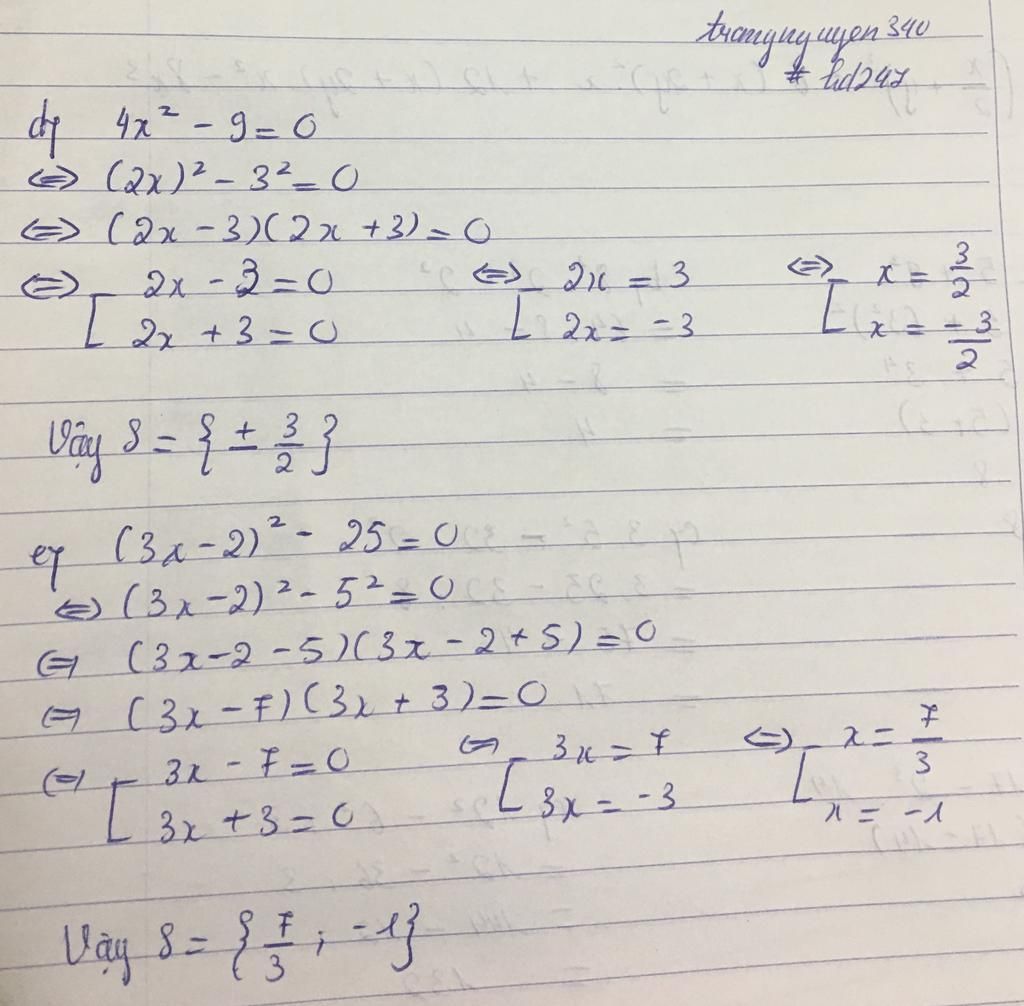 tramynguyen340
# hd247
d) 4x² - 9 = 0
⇔ (2x)² - 3² = 0
⇔ (2x - 3)(2x + 3) = 0
⇔ [ 2x - 3 = 0 ⇔ [ 2x = 3 ⇔ [ x = 3/2
2x + 3 = 0 2x = -3 x = -3/2
Vậy S = { ± 3/2 }
e) (3x - 2)² - 25 = 0
⇔ (3x - 2)² - 5² = 0
⇔ (3x - 2 - 5)(3x - 2 + 5) = 0
⇔ (3x - 7)(3x + 3) = 0
⇔ [ 3x - 7 = 0 ⇔ [ 3x = 7 ⇔ [ x = 7/3
3x + 3 = 0 3x = -3 x = -1
Vậy S = { 7/3 ; -1 }